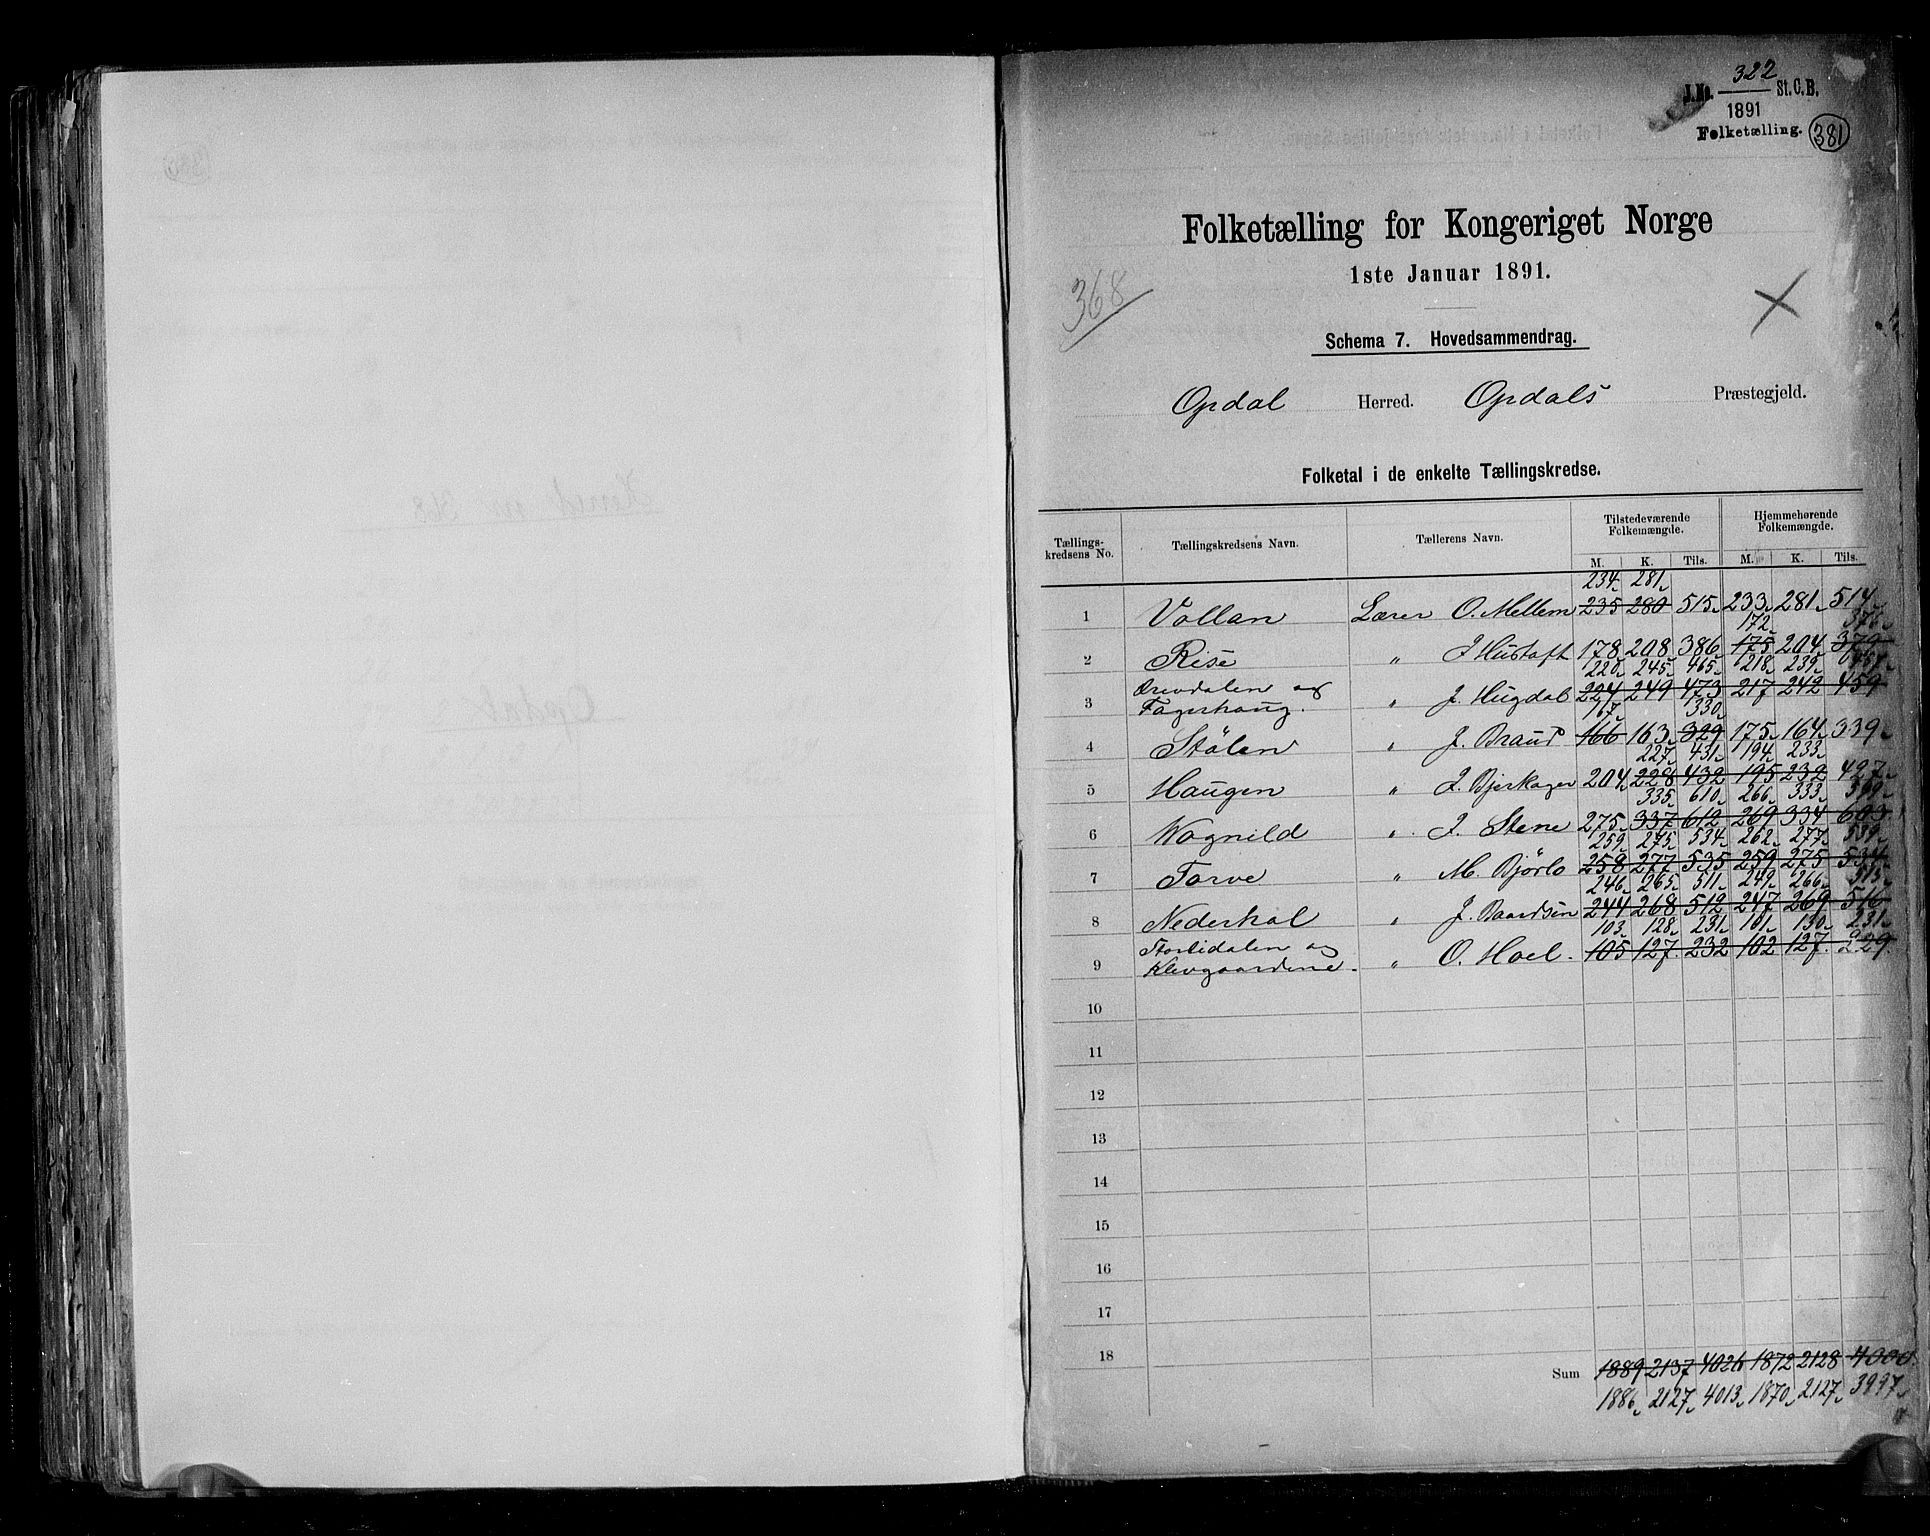 322
J.No. St.C.B.
1891
Folketælling. 381
Folketælling for Kongeriget Norge
1ste Januar 1891.
368
Schema 7. Hovedsammendrag.
Opdal Herred. Opdals Præstegjeld.
Folketal i de enkelte Tællingskredse.
Tællings-kredsens No. Tællingskredsens Navn. Tællerens Navn. Tilstedeværende Folkemængde. Hjemmehørende Folkemængde.
M. K. Tils. M. K. Tils.
234 281
1 Vollan Lærer O. Mellem 235 280 515 233 281 514
172 376
2 Rise " J Hustoft 178 208 386 175 204 379
220 245 465 218 239 457
3 Drivdalen og Fagerhaug. " J. Hugdal 224 249 473 217 242 459
167 330
4 Stølen " J. Braud 166 163 329 175 164 339
227 431 194 233
5 Haugen " J. Bjerkager 204 228 432 195 232 427
335 610 266 333 599
6 Vognild " J. Stene 275 337 612 269 334 603
259 275 534 262 277 539
7 Torve " M. Bjørlo 258 277 535 259 275 534
246 265 511 249 266 515
8 Nederhol " J. Baardsen 244 268 512 247 269 516
103 128 231 101 130 231
9 Storlidalen og Klevgaardene. " O. Hoel. 105 127 232 102 127 229
10
11
12
13
14
15
16
17
18
Sum 1889 2137 4026 1872 2128 4000
1886 2127 4013 1870 2127 3997